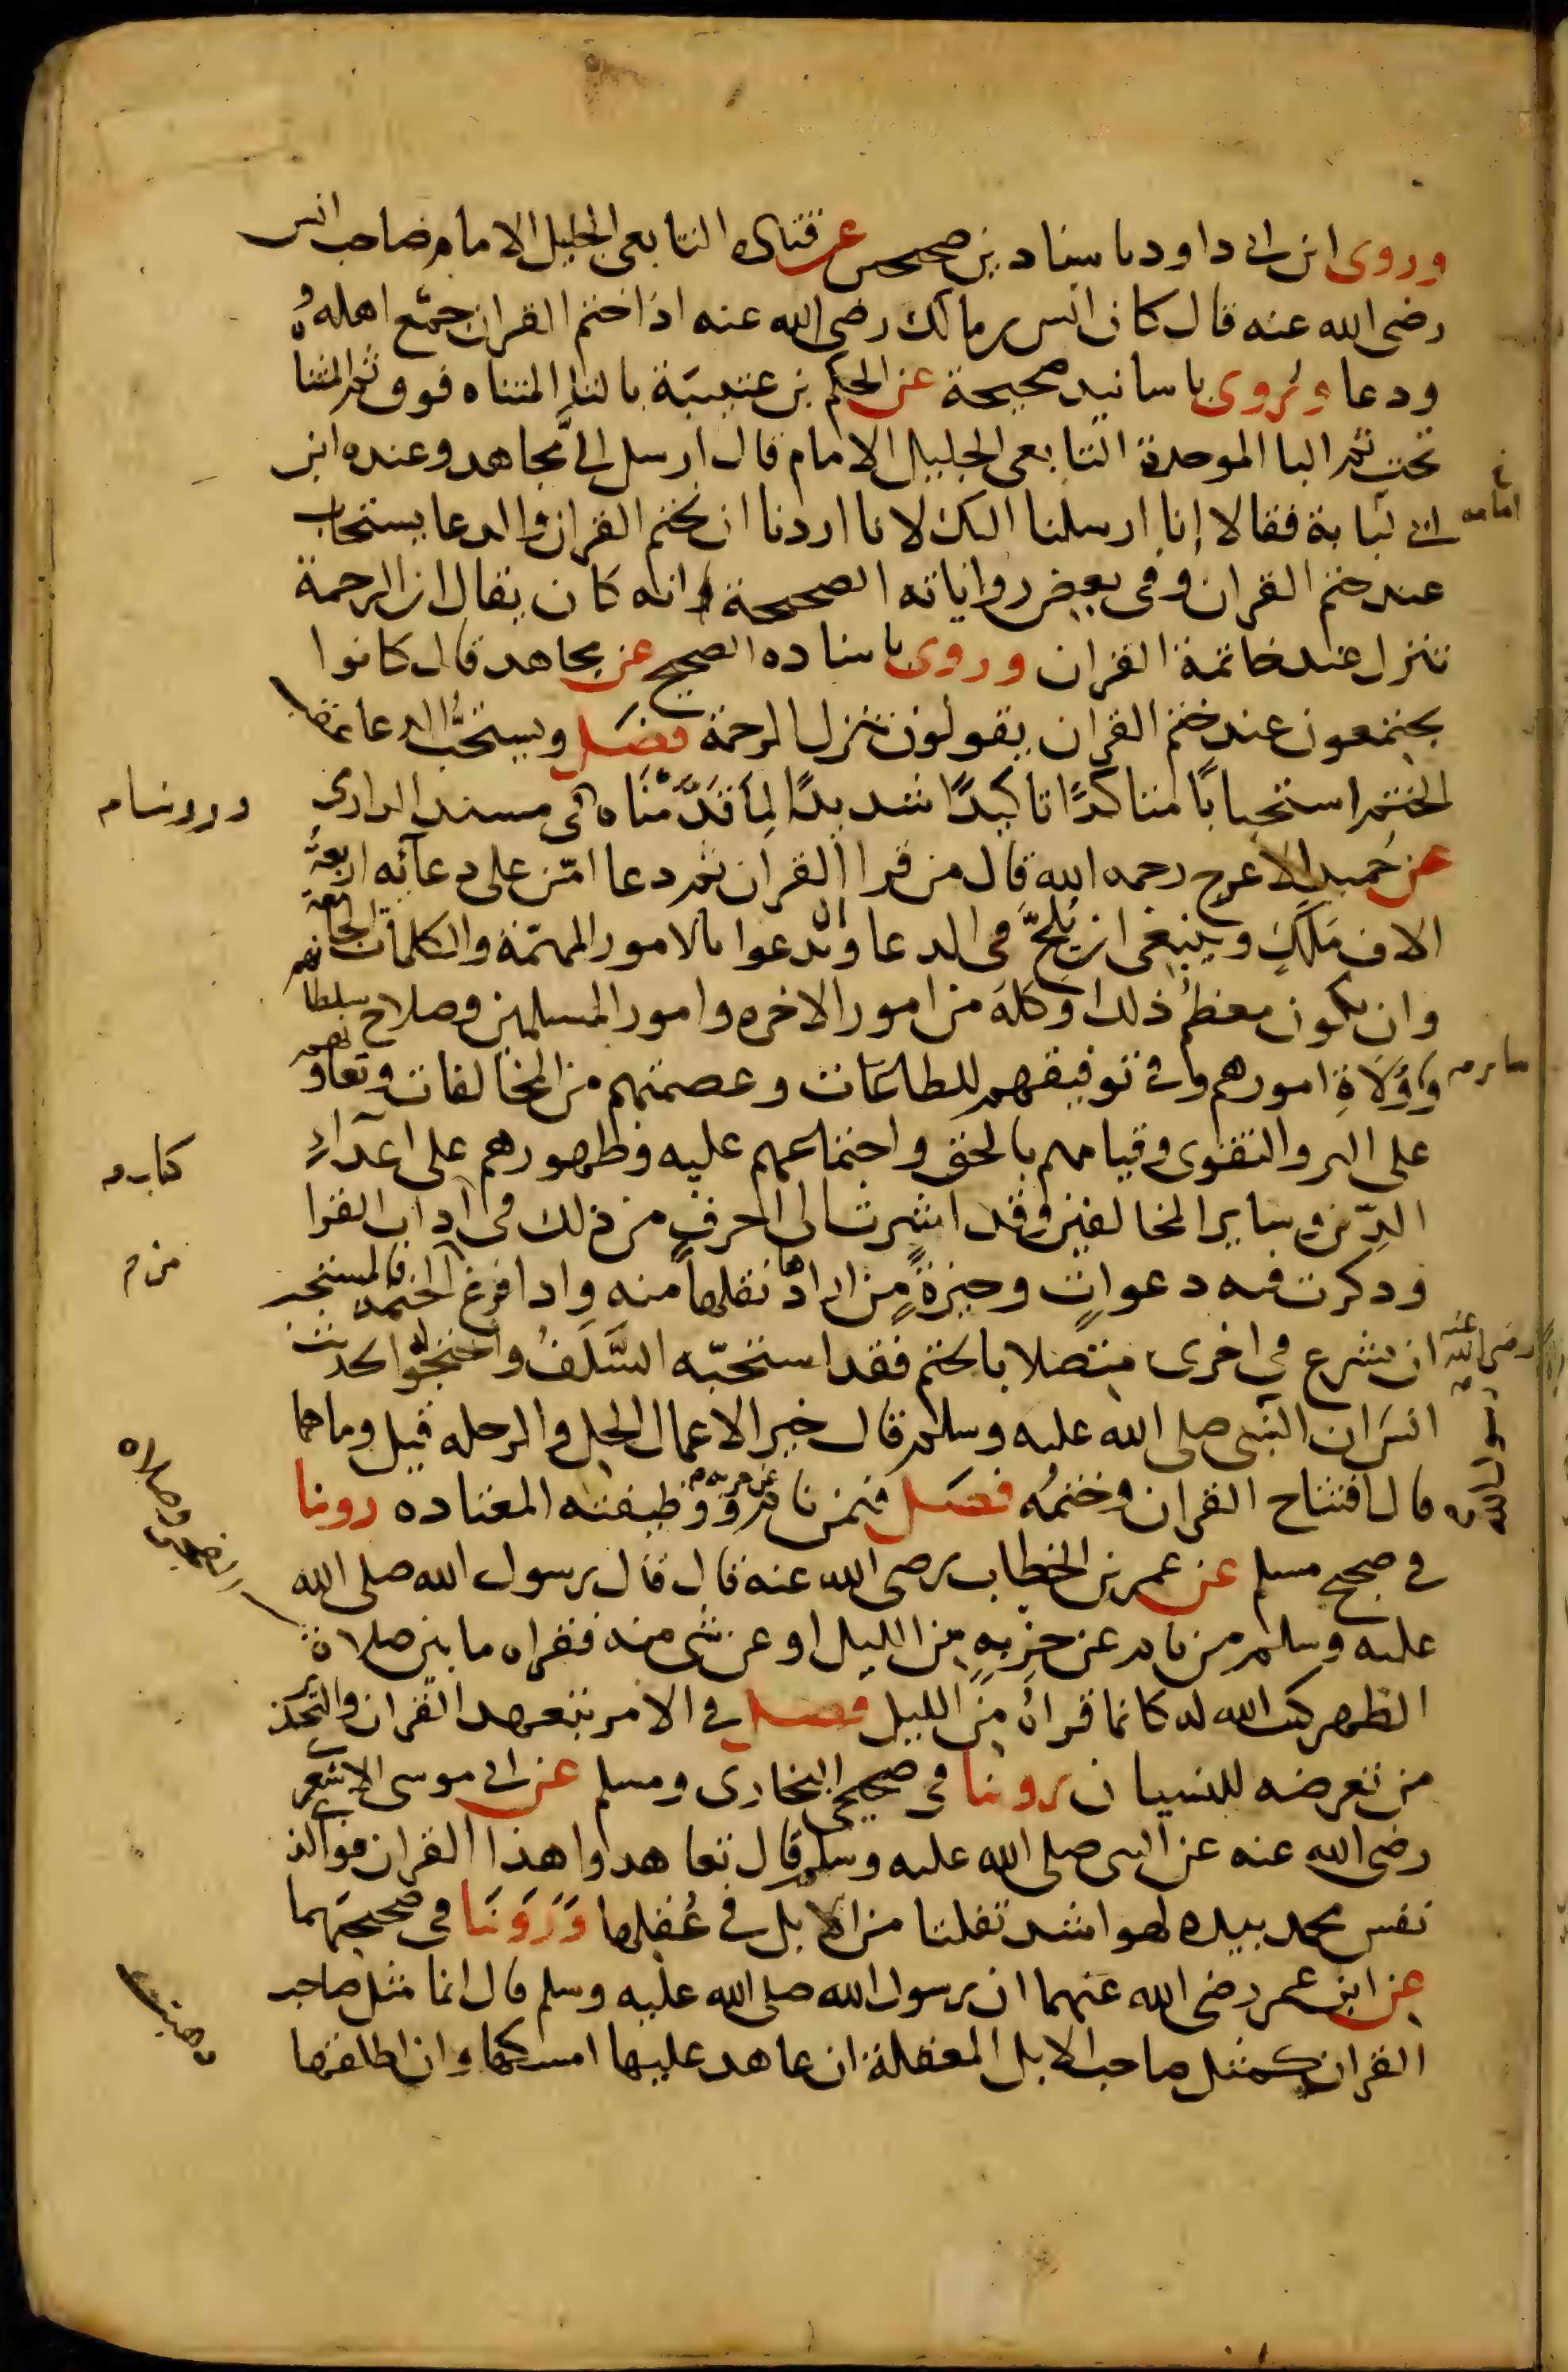 وروى ابن ابى داود باسنادين صحيحين عن قتاده التابعى الجليل الامام صاحب انس
رضى الله عنه قال كان انس بن مالك رضى الله عنه اذا ختم القران جمّع اهلهُ
ودعا وروى باسانيد صحيحة عن الحكم بن عتيبَة بالتا المثناه فوق ثم المثنا
تحت ثم البا الموحدة التابعى الجليل الامام قال ارسل اليَّ مجاهد وعنده ابن
ابى لبابة فقالا إنا ارسلنا اليك لانا اردنا ان نختم القران والدعا يستجاب
عند ختم القران وفى بعض رواياته الصحيحة وانه كان يقال ان الرحمة
تنزل عند خاتمة القران وروى باسناده الصحيح عن مجاهد قال كانوا
يجتمعون عند ختم القران يقولون تنزل الرحمة فصل ويستحبُّ الدعا عقب
الختم استحبابًا متاكدًا تاكيدًا شديدًا لِمَا قَدَّمْنَاه فى مسند الدارى
عن حُميد الاعرج رحمه الله قال من قرا القران ثم دعا امّن على دعآئه اربعةُ
الاف مَلَكٍ وينبغى ان يُلِحَّ فى الدعا وان يدعوا بالامور المهمّة والكلمات الجامعة
وان يكون معظمُ ذلك او كله من امور الاخره وامور المسلمين وصلاح سلطانهم
ووُلَاةِ امورهم وفى توفيقهم للطاعات وعصمتهم من المخالفات وتعاونهم
على البر والتقوى وقيامهم بالحق واجتماعهم عليه وظهورهم على اعدآءِ
الدِّين وساير المخالفين وقد اشرت الى احرفٍ من ذلك فى اداب القرا
وذكرت فيه دعواتٍ وجيزةً من ارادها نقلها منه واذا فرغ من الختمه فالمستحب
ان يشرع في اخرى متصلا بالختم فقد استحبّه السَّلَفُ واحتجّوا لحديث
انسَ ان النبى صلى الله عليه وسلم قال خير الاعمال الحل والرحله قيل وما هما
قال افتتاح القران وختمُه فصل فيمن نام عن حزبه ووظيفته المعتاده روينا
فى صحيح مسلم عن عمر بن الخطاب رضى الله عنه قال قال رسول الله صلى الله
عليه وسلم من نام عن حزبِهِ من الليل او عن شى منه فقراه ما بين صلاة
الظهر كتب الله له كانما قراهُ مِنَ الليل فصل فى الامر بتعهد القران والتحذير
من تعرضه للنسيان روينا فى صحيحى البخارى ومسلم عن ابى موسى الاشعرى
رضى الله عنه عن النبى صلى الله عليه وسلم قال تعاهدوا هذا القران فوالذى
نفس محمد بيده لهو اشد تفلتا من الابل فى عُقلها وَرَوَيْنَا فى صحيحيهما
عن ابن عمر رضى الله عنهما ان رسول الله صلى الله عليه وسلم قال انما مثل صاحب
القران كمثل صاحب الابل المعقلة ان عاهد عليها امسكها وان اطلقها
امامه
كتاب
رضى الله عنه